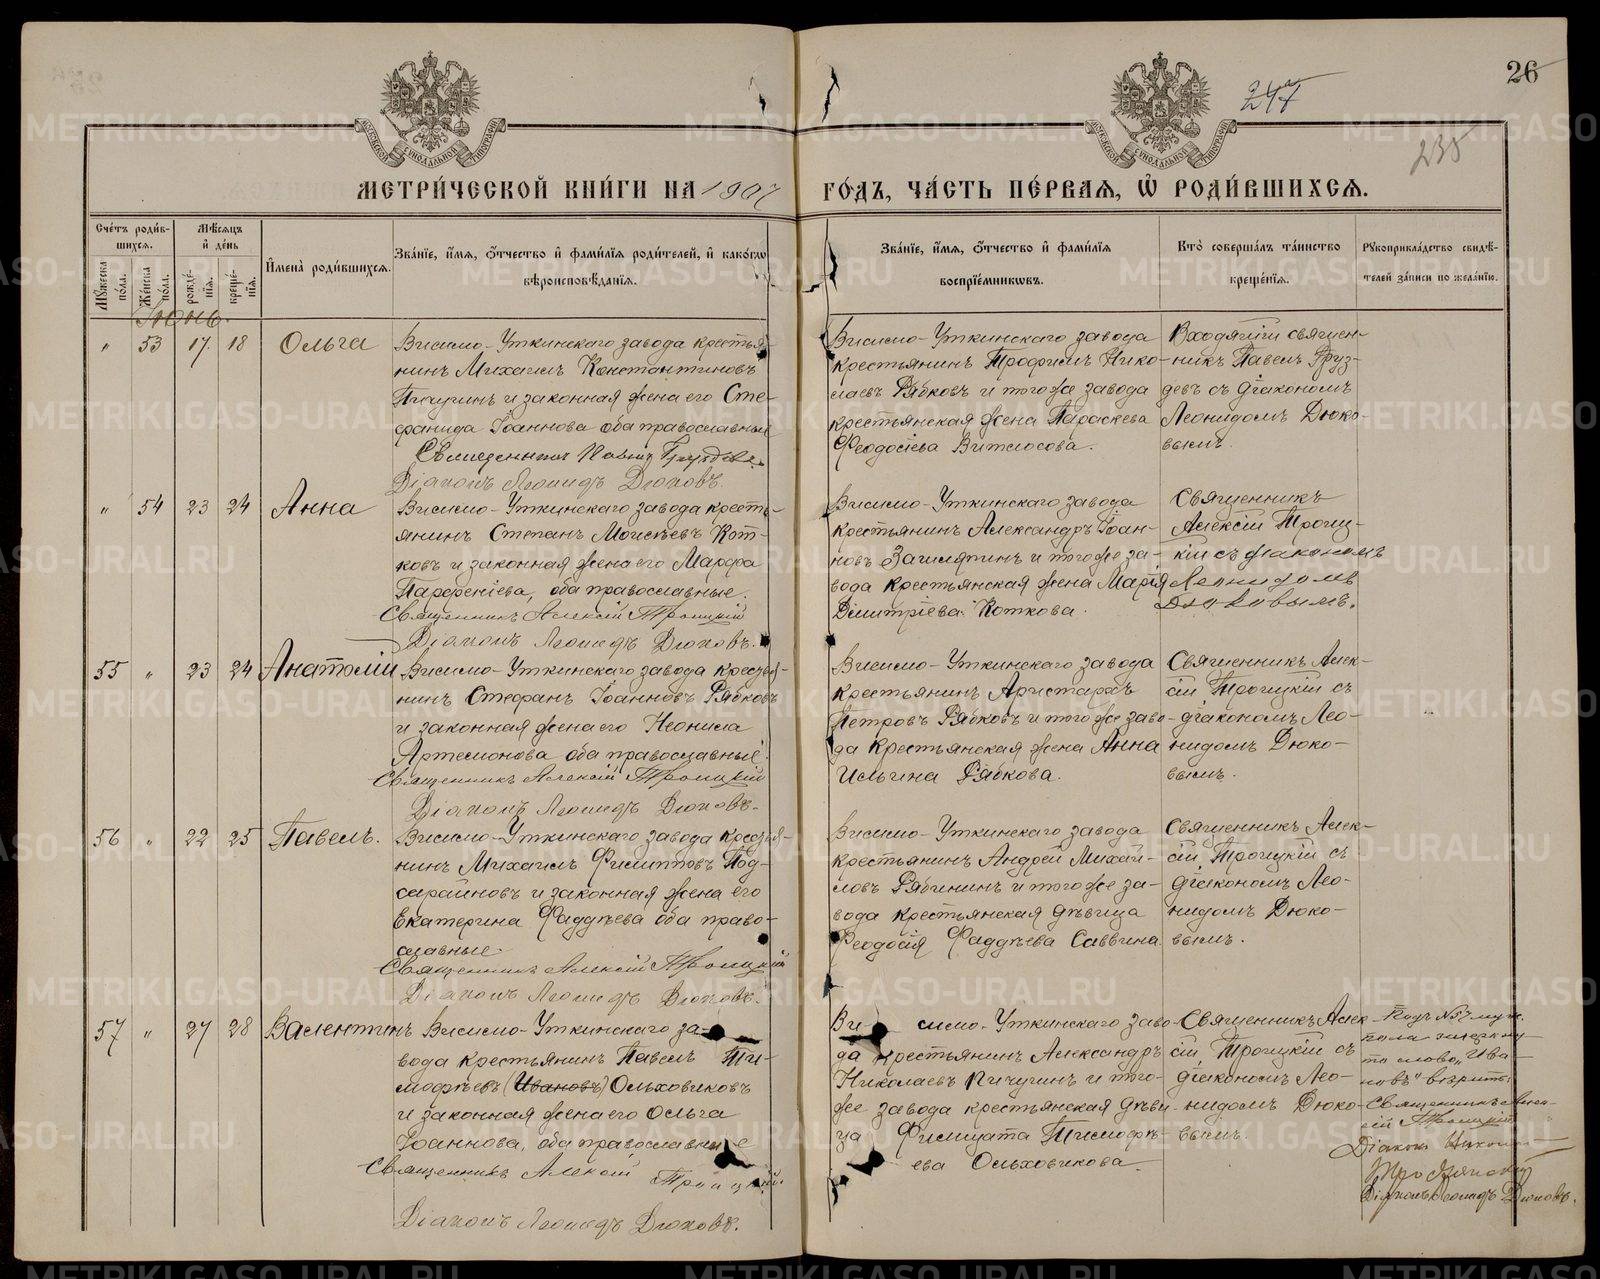 26
247
235
МЕТРИ́ЧЕСКОЙ КНИ́ГИ НА 1907 ГО́ДЪ, ЧА́СТЬ ПЕ́РВАѦ, Ѡ҆ РОДИ́ВШИХСѦ.
Сче́тъ роди́в-
шихсѧ.
Мꙋ́жеска по́ла.
Же́нска по́ла.
Мѣ́сѧцъ
и҆ де́нь
рожде́-
нїѧ.
креще́-
нїѧ.
И҆мена̀ роди́вшихсѧ.
Зва́нїе, и҆́мѧ, ѻ҆́тчество и҆ фами́лїѧ роди́телей, и҆ како́гѡ
вѣроисповѣ́данїѧ.
Зва́нїе, и҆́мѧ, ѻ҆́тчество и҆ фами́лїѧ
воспрїе́мникѡвъ.
Кто̀ соверша́лъ та́инство
креще́нїѧ.
Рꙋкоприкла́дство свидѣ́-
телей за́писи по жела́нїю.
Іюнь.
„ 53 17. 18 Ольга
Висимо-Уткинскаго завода крестья-
нинъ Михаилъ Константиновъ
Пичугинъ и законная жена его Сте-
фанида Іоаннова оба православные
Священникъ Павелъ Груздевъ
Діаконъ Леонидъ Дюковъ.
Висимо-Уткинскаго завода
крестьянинъ Трофимъ Нико-
лаевъ Рябковъ и того же завода
крестьянская жена Параскева
Феодосіева Витюсова.
Входящій священ-
никъ Павелъ Груз-
девъ съ діакономъ
Леонидомъ Дюко-
вымъ.
„ 54 23 24 Анна
Висимо-Уткинскаго завода кресть-
янинъ Степанъ Моисѣевъ Кот-
ковъ и законная жена его Марфа
Парфеніева, оба православные.
Священникъ Алексій Троицкій
Діаконъ Леонидъ Дюковъ.
Висимо-Уткинскаго завода
крестьянинъ Александръ Іоан-
новъ и того же за-
вода крестьянская жена Марія
Димитріева Коткова.
Священникъ
Алексій Троиц-
кій съ діакономъ
Леонидомъ
Дюковымъ.
55 „ 23 24 Анатолій
Висимо-Уткинскаго завода крестья-
нинъ Стефанъ Іоанновъ Рябковъ
и законная жена его Неонила
Артемонова оба православные.
Священникъ Алексій Троицкій
Діаконъ Леонидъ Дюковъ.
Висимо-Уткинскаго завода
крестьянинъ Аристархъ
Петровъ Рябковъ и того же заво-
да крестьянская жена Анна
Ильина Рябкова.
Священникъ Алек-
сій Троицкій съ
діакономъ Лео-
нидомъ Дюко-
вымъ.
56 „ 22 25 Павелъ.
Висимо-Уткинскаго завода крестья-
нинъ Михаилъ Филипповъ Под-
сарайновъ и законная жена его
Екатерина Фаддѣева оба право-
славные.
Священникъ Алексій Троицкій
Діаконъ Леонидъ Дюковъ.
Висимо-Уткинскаго завода
крестьянинъ Андрей Михай-
ловъ Рябининъ и того же за-
вода крестьянская дѣвица
Феодосія Фаддѣева Саввина
Священникъ Алек-
сій Троицкій съ
діакономъ Лео-
нидомъ Дюко-
вымъ.
57 „ 27 28 Валентинъ
Висимо-Уткинскаго за-
вода крестьянинъ Павелъ Ти-
мофѣевъ (Ивановъ) Ольховиковъ
и законная жена его Ольга
Іоаннова, оба православные
Священникъ Алексій Троицкій.
Діаконъ Леонидъ Дюковъ.
Висимо-Уткинскаго заво-
да крестьянинъ Александръ
Николаевъ Пичугинъ и того-
же завода крестьянская дѣви-
ца Филицата Тимофѣ-
ева Ольховикова.
Священникъ Алек-
сій Троицкій съ
діакономъ Лео-
нидомъ Дюко-
вымъ.
Подъ №57 муж.
пола зачеркну-
то слово „Ива-
новъ" вѣрить.
Священникъ Алек-
сій Троицкій
Діаконъ
Діаконъ Леонидъ Дюковъ.
METRIKI.GASO-URAL.RU